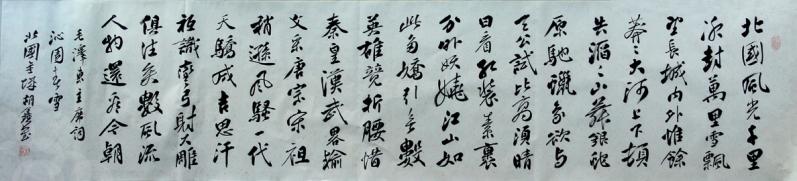 北國風光千里
冰封萬里雪飄
望長城內外惟餘
莽々大河上下頓
失滔々山舞銀蛇
原馳蠟象欲与
天公試比高須晴
日看紅裝素裹
分外妖嬈江山如
此多嬌引無數
英雄競折腰惜
秦皇漢武畧輸
文采唐宗宋祖
稍遜風騷一代
天驕成吉思汗
祇識彎弓射大雕
俱往矣數風流
人物還看今朝
毛澤東主席詞
沁園春雪
北國